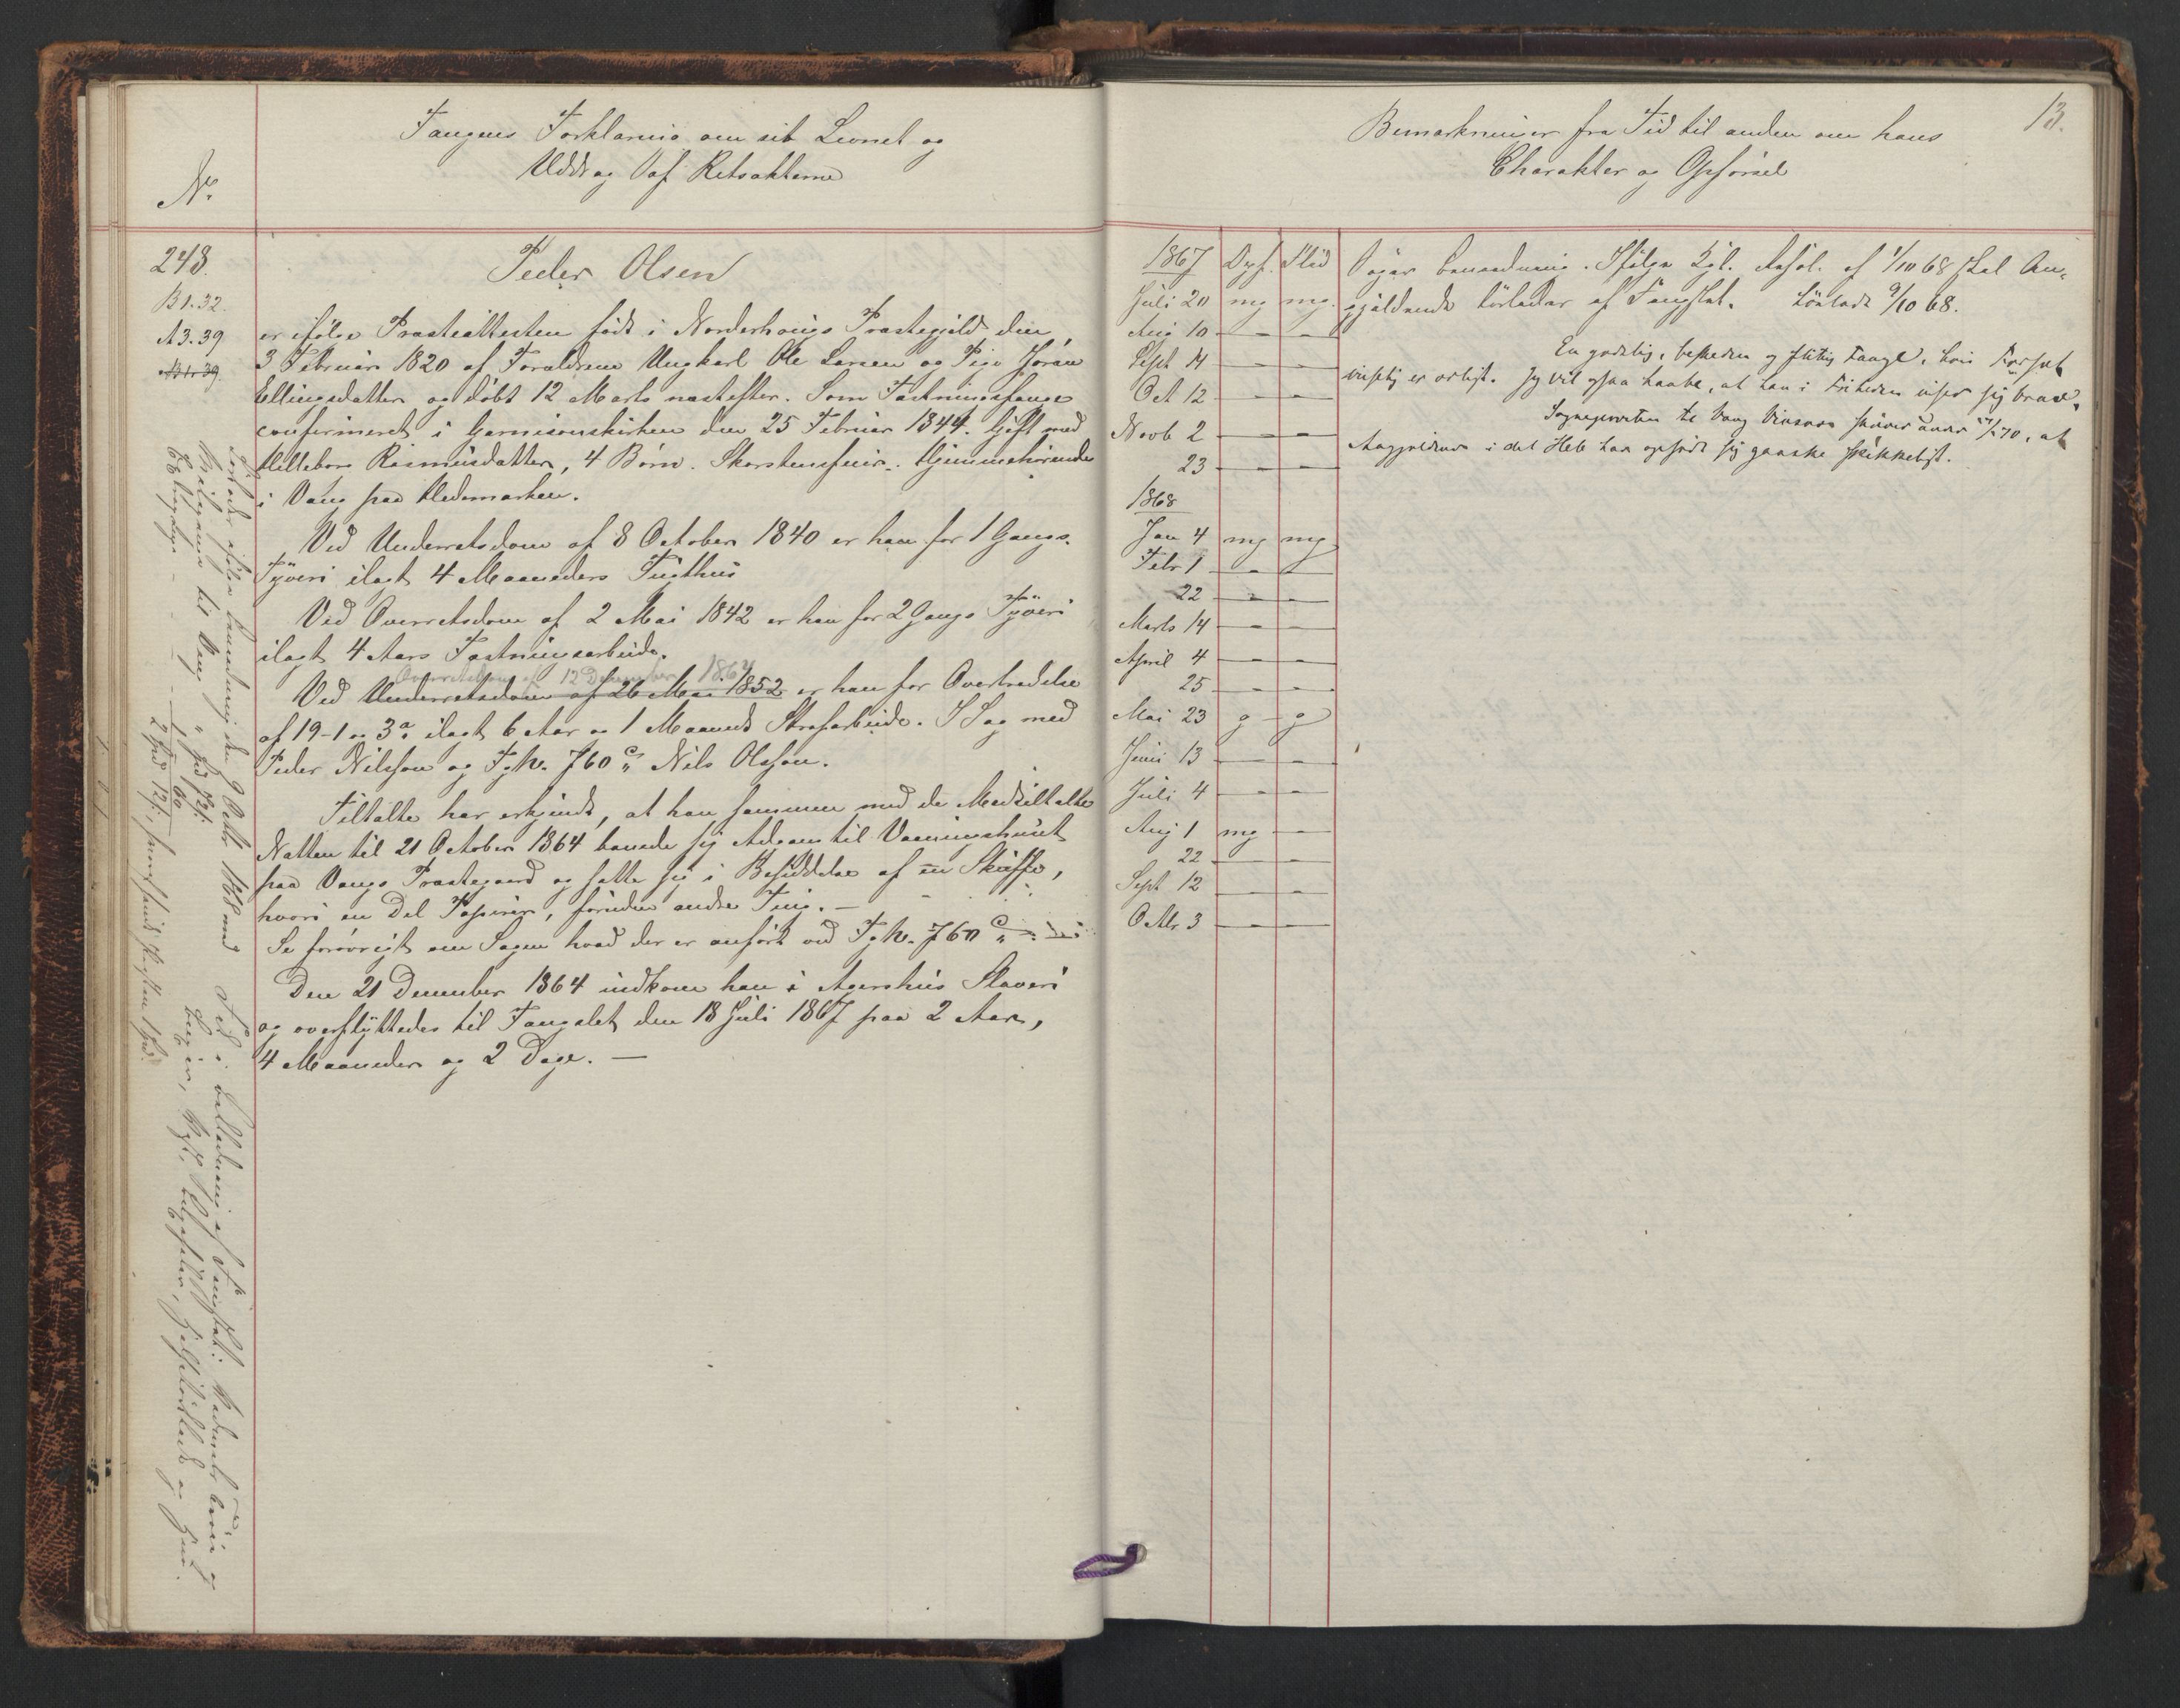 Fangens Forklaring om sit Levnet og
Uddrag af Retsakterne
No
248.
B1.32.
A3.39
B1.39.
Peder Olsen
er ifølge Præsteattesten født i Norderhougs Præstegjæld den
3 Februar 1820 af Forældrene Ungkarl Ole Larsen og Pige Joran
Ellingsdatter og døbt 12 Marts næstefter. Som Fæstningsfange
confirmeret i Garnisonskirken den 25 Februar 1844. Gift med
Helleborg Rasmusdatter, 4 Børn. Skorstensfeier. Hjemmehørende
i Vang paa Hedemarken.
Ved Underretsdom af 8 October 1840 er han for 1 Gangs
Tyveri ilagt 4 Maaneders Tugthus
Ved Overretsdom af 2 Mai 1842 er han for 2 Gangs Tyveri
ilagt 4 Aars Fæstningsarbeide.
Overretsdom af 12 December 1864
Ved Underretsdom af 26 Mai 1852 er han for Overtrædelse
af 19-1 og 3a ilagt 6 Aar og 1 Maaneds Strafarbeide. I Sag med
Peder Nilsson og Fg No. 760 C Nils Olsson.
Tiltalte har erkjendt, at han sammen med de Medtiltalte
Natten til 21 October 1864 banede sig Adgang til Vaaningshuset
paa Vangs Præstegaard og satte sig i Besiddelse af en Skuffe,
hvori en Del Papirer, foruden andre Ting. —
Se forøvrigt om Sagen hvad der er anført ved Fg No. 760 C
Den 21 December 1864 indkom han i Agershus Slaveri
og overflyttedes til Fangslet den 18 Juli 1867 paa 2 Aar,
4 Maaneder og 2 Dage. —
Løslades ifølge Benaadning den 9 Octbr 1868 med
Reisepenge til Vang
2 Spd 12 s;
13.
Bemærkninger fra Tid til anden om hans
Charakter og Opførsel
1867 Opf. Flid
Juli 20 mg mg.
Aug 10 — —
Sept 14 — —
Oct 12 — —
Novb 2 — —
23 — —
1868
Jan 4 mg mg
Febr 1 — —
22 — —
Marts 14 — —
April 4 — —
25 — —
Mai 23 g — g
Juni 13 — —
Juli 4 — —
Aug 1 mg —
22 — —
Sept 12 — —
Octbr 3 — —
Søger Benaadning. Ifølge Kgl. Resol. af 1/10 68 skal An-
gjældende løslades af Fangslet. Løsladt 9/10 68.
En godslig, beskeden og flittig Fange, hvis Forsæt
vistnok er ærligt. Jeg vil ogsaa haabe, at han i Friheden viser sig brav.
Sognepræsten til Vang skriver under 70, at
Angjældende i det Hele har opført sig ganske skikkeligt.